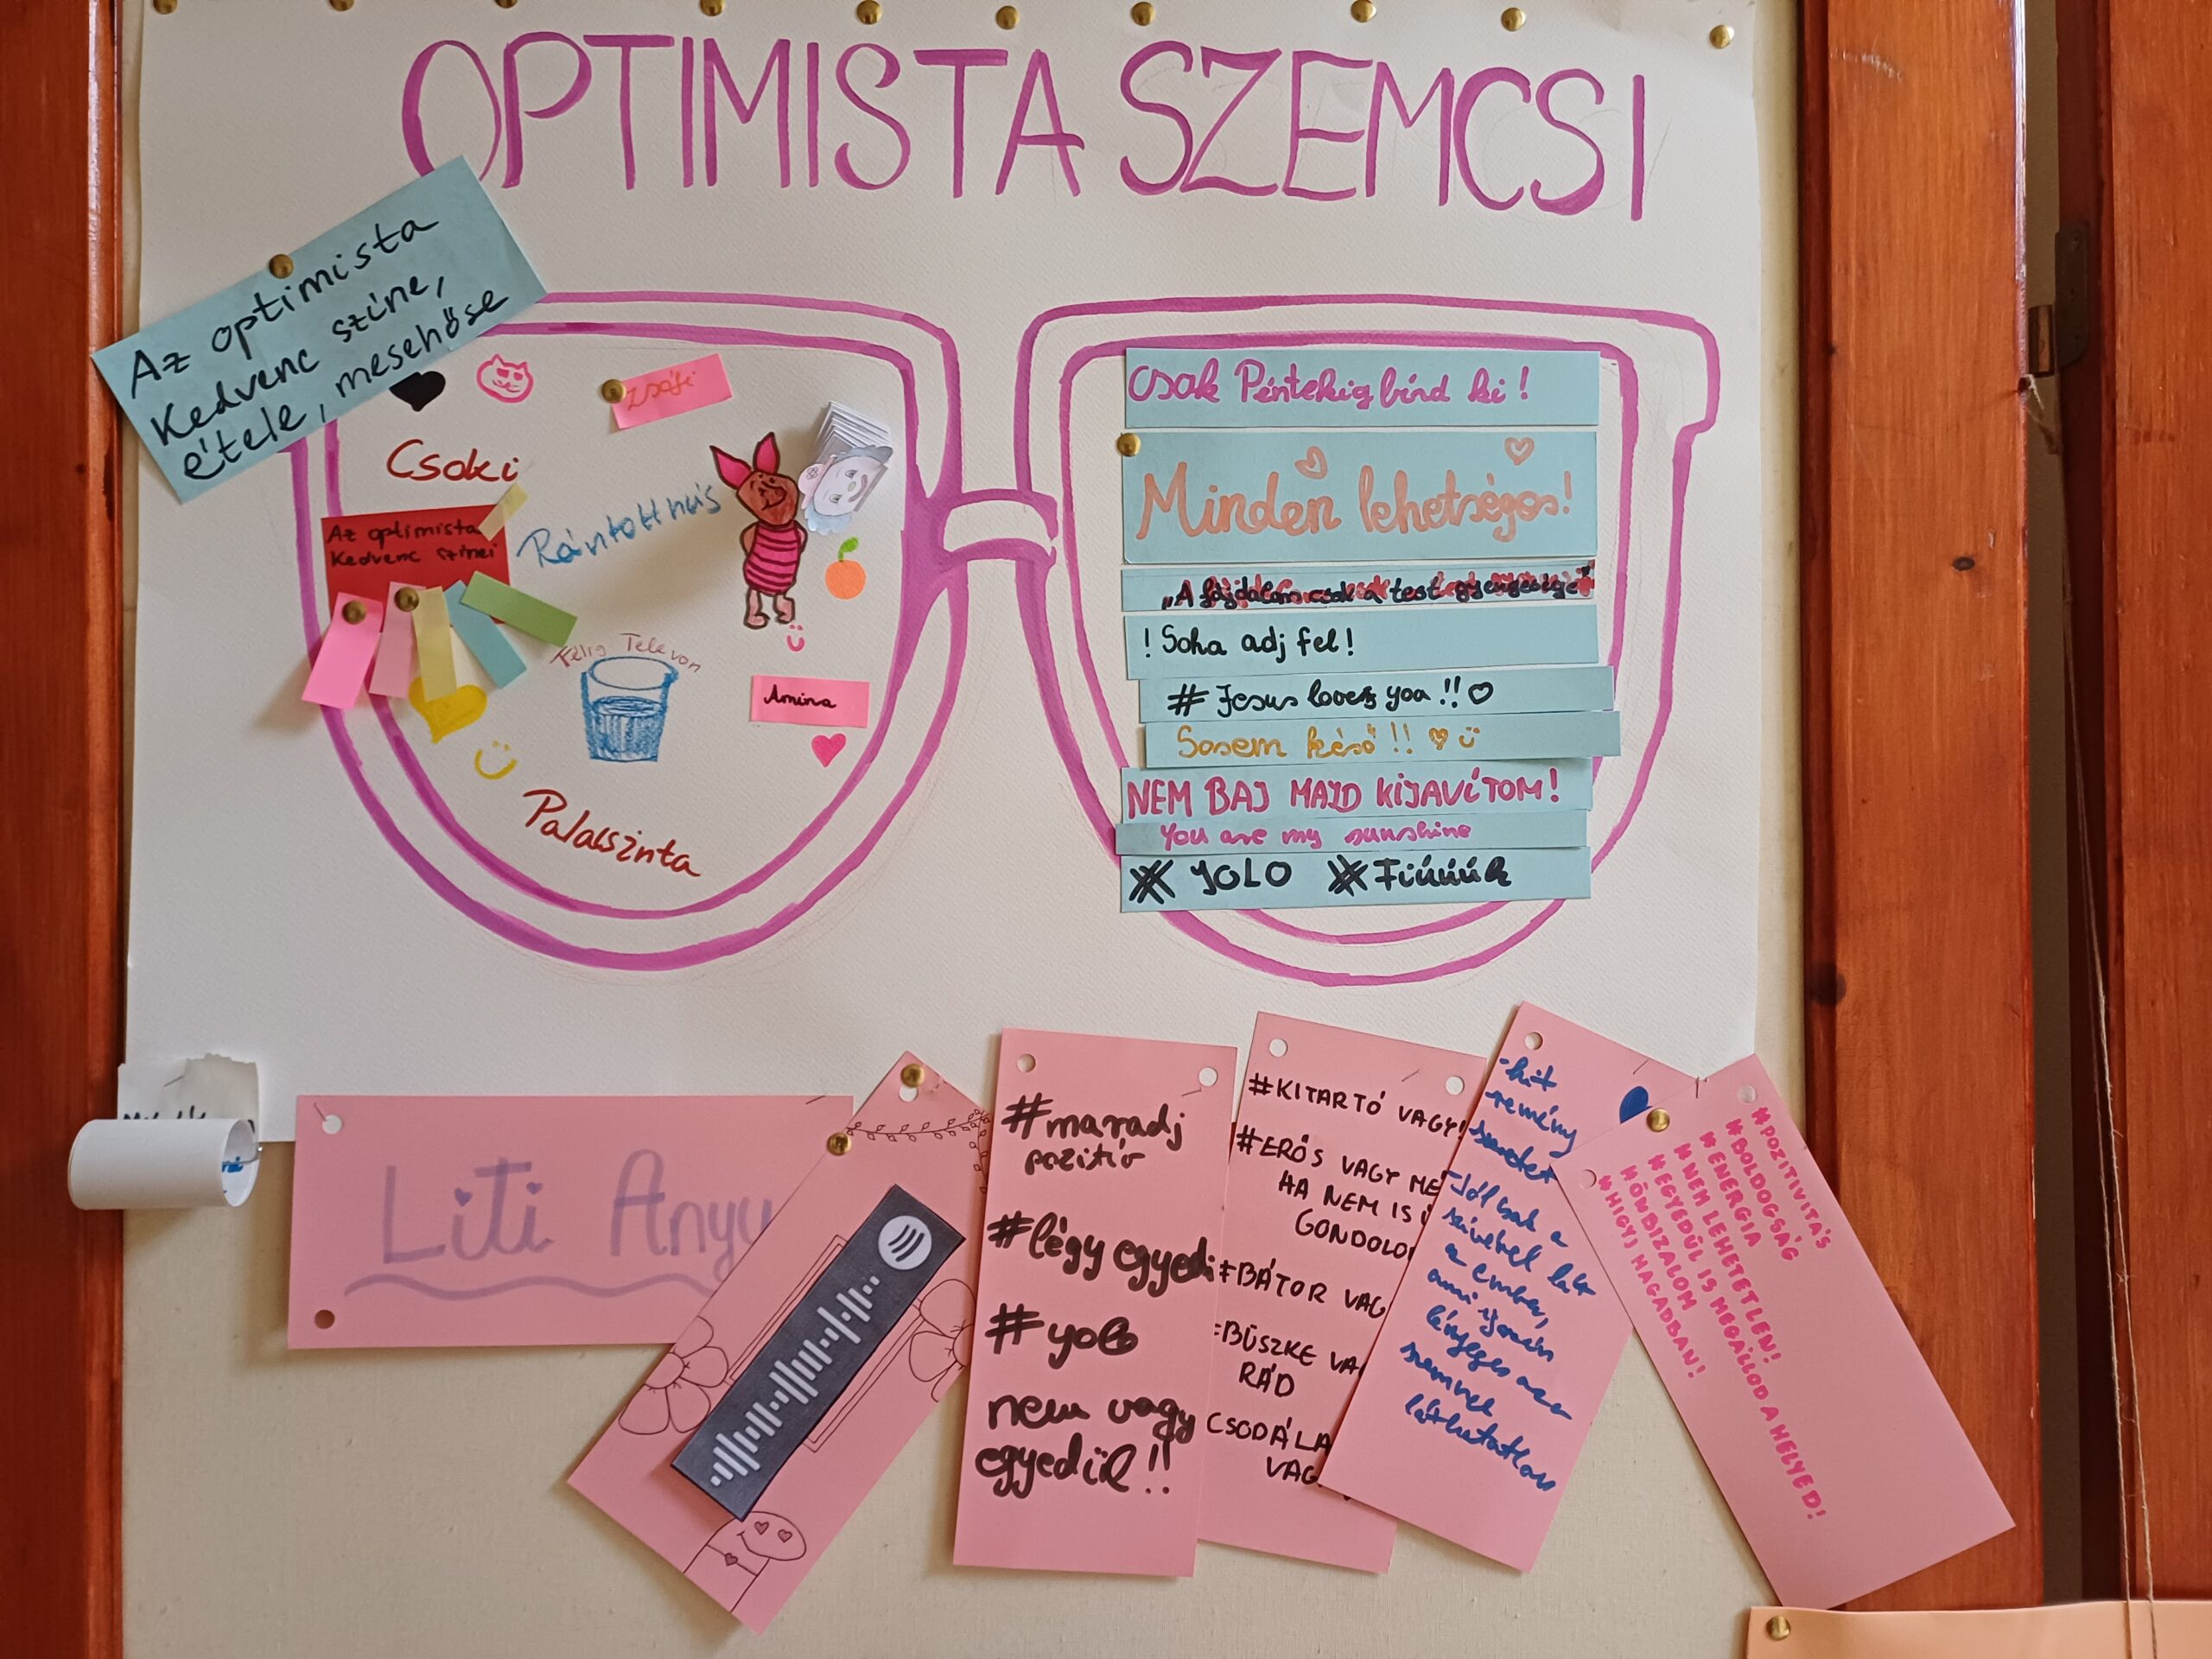 OPTIMISTA SZEMCSI
Az optimista
Kedvenc színe,
étele, mesehőse
zsófi
Csoki
Rántotthús
Az optimista
Kedvenc színei
Félig Tele van
Amina
Palacsinta
Csak Péntekig bírd ki!
Minden lehetséges!
"A fájdalom csak a test gyengesége"
! Soha adj fel!
# Jesus loves you !!
Sosem késő!!
NEM BAJ MAJD KIJAVÍTOM!
You are my sunshine
# YOLO # Fiúúúk
Liti Anyu
#maradj
pozitív
#légy egyedi
#yolo
nem vagy
egyedül!!
#KITARTÓ VAGY!
#ERŐS VAGY MÉ
HA NEM IS
GONDOLO
#BÁTOR VAG
#BÜSZKE VA
RÁD
CSODÁLA
VAG
-hit
-remény
szeretet
-Jól csak a
szívével lát
az ember,
ami igazán
lényeges az a
szemnek
láthatatlan
#POZITIVITÁS
#BOLDOGSÁG
#ENERGIA
#NEM LEHETETLEN!
#EGYEDÜL IS MEGÁLLOD A HELYED!
#ÖNBIZALOM
#HIGYJ MAGADBAN!